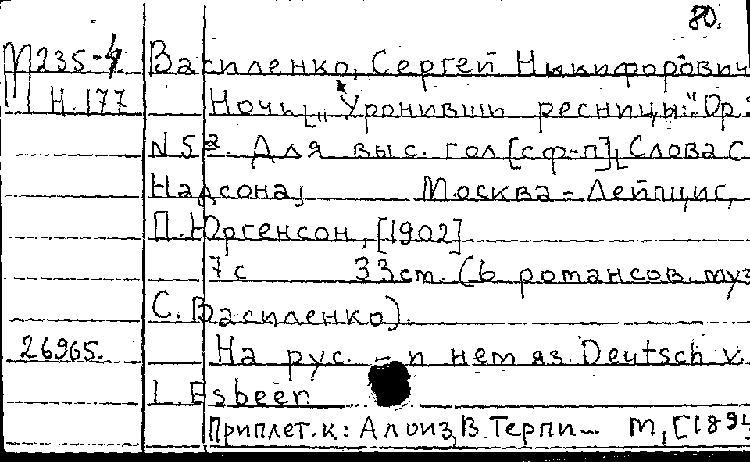 80.
М235-4 Василенко, Сергей Никифорович
Н.177 Ночь. „Уронивши ресницы." Op.
N5ª. Для выс. гол [с ф-п]. Слова С
Надсона, Москва - Лейпциг,
П. Юргенсон, [1902]
7 с 33 ст. (6 романсов. муз
С. Василенко).
26965. На рус. - и нем яз. Deutsch v.
L. Esbeer
Приплет. к: Алоиз, В. Терпи- М, [189